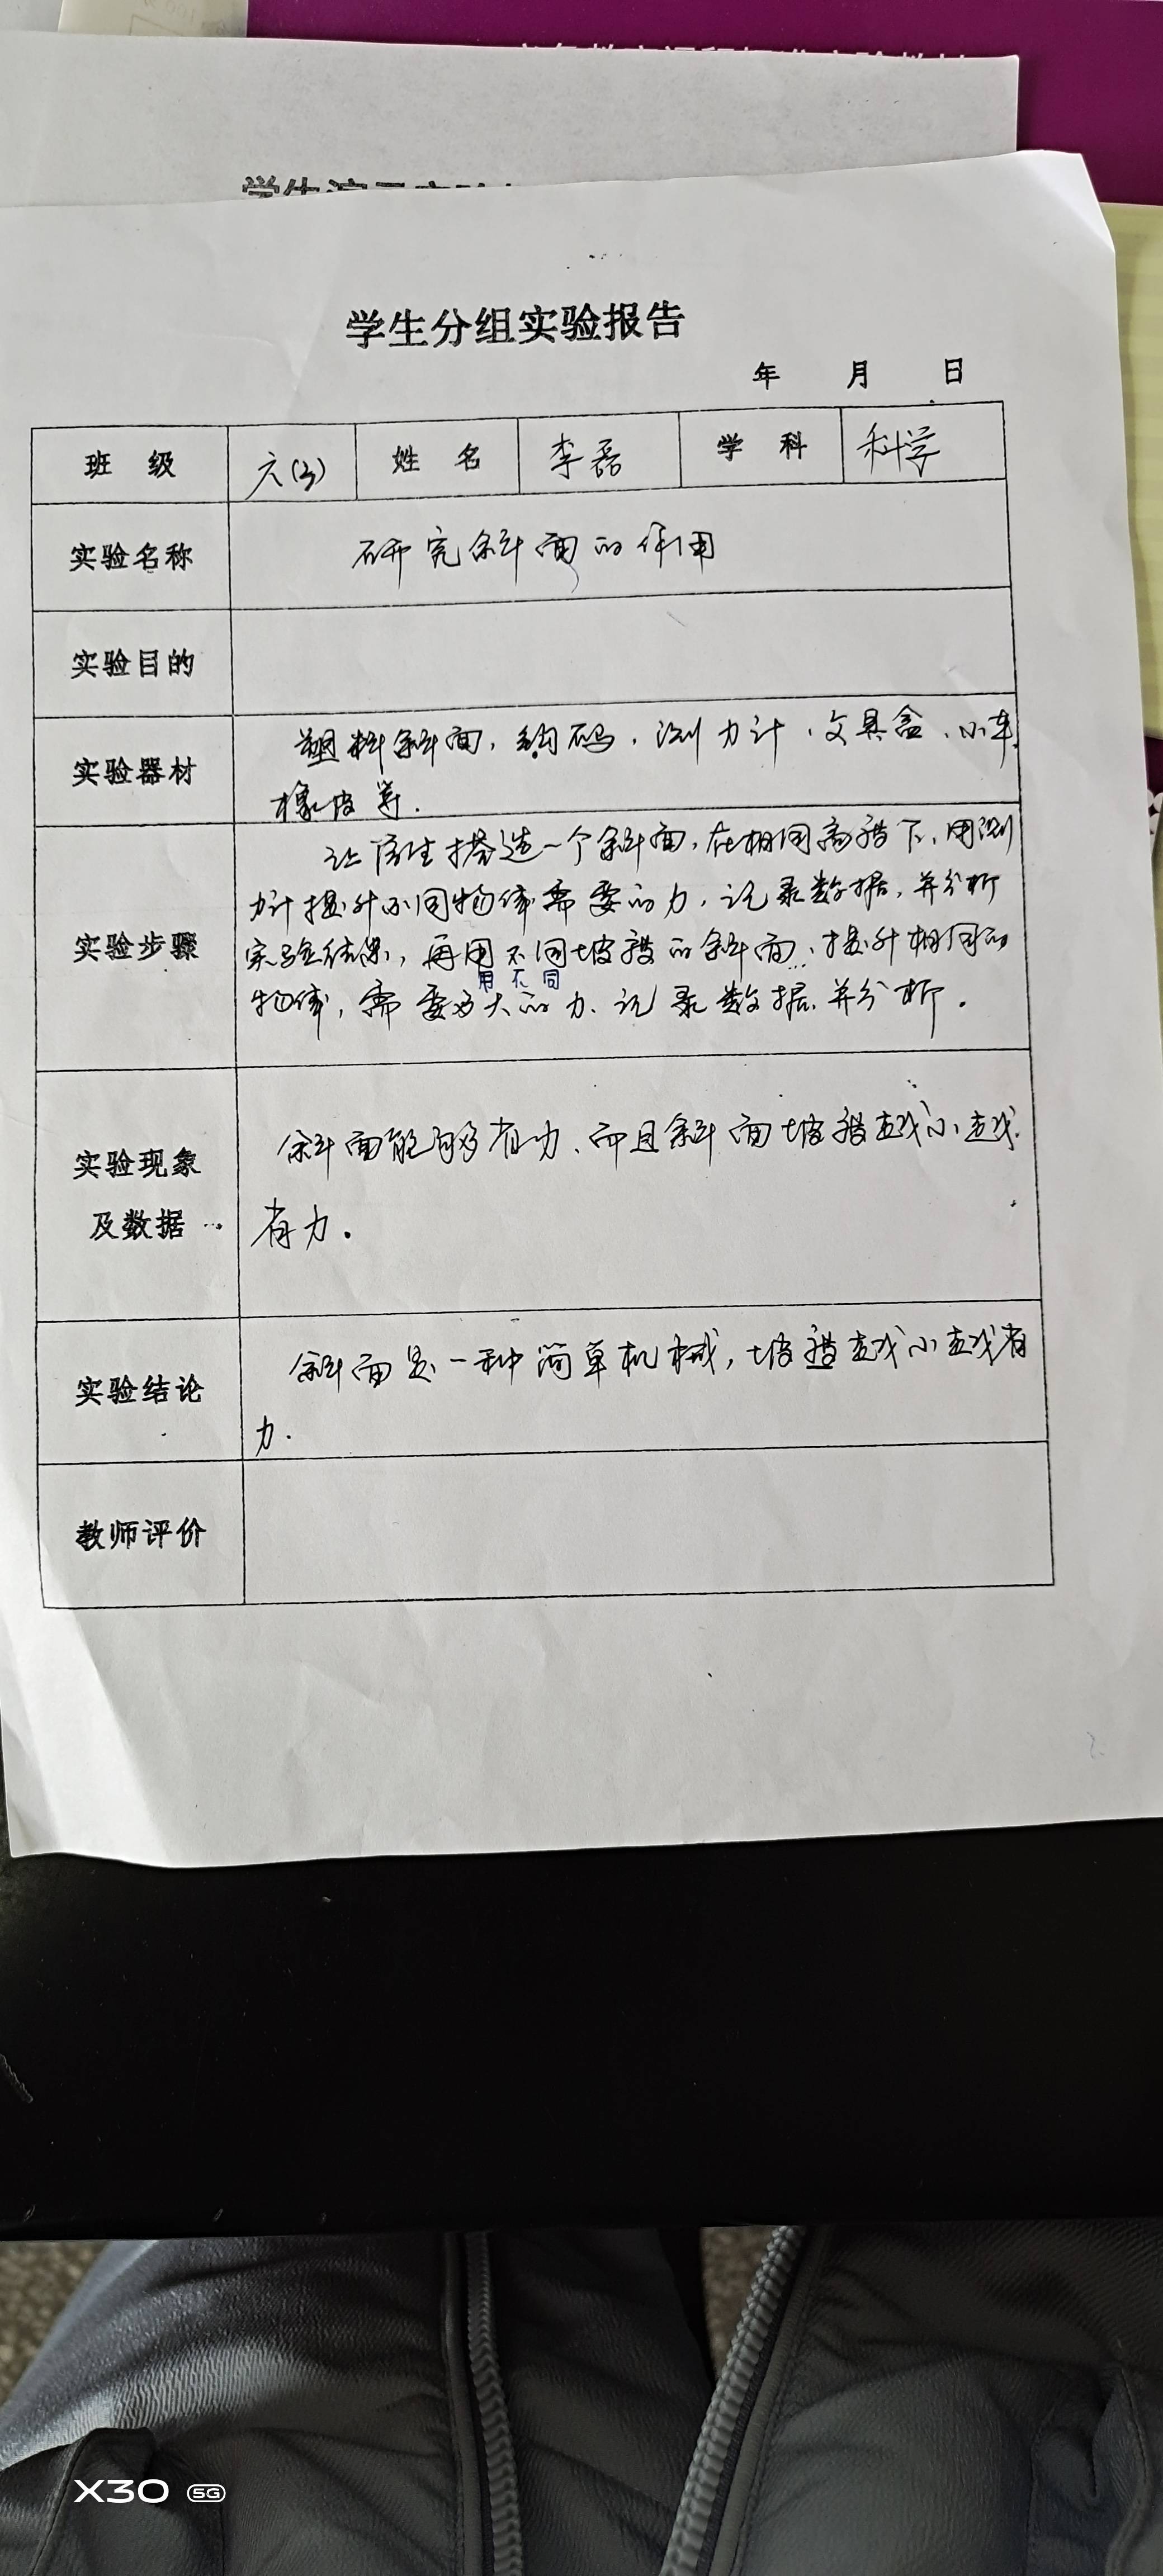 学生分组实验报告
年 月 日
班 级 六(3) 姓 名 李磊 学 科 科学
实验名称 研究斜面的作用
实验目的
实验器材 塑料斜面,钩码,测力计、文具盒、小车
橡皮等.
实验步骤 让学生搭造一个斜面,在相同高度下,用测
力计提升不同物体需要的力,记录数据,并分析
实验结果,再用不同坡度的斜面,提升相同的
用不同
物体,需要多大的力、记录数据,并分析。
实验现象
及数据
斜面能够省力、而且斜面坡度越小越
省力。
实验结论 斜面是一种简单机械,坡度越小越省
力.
教师评价
X30 5G